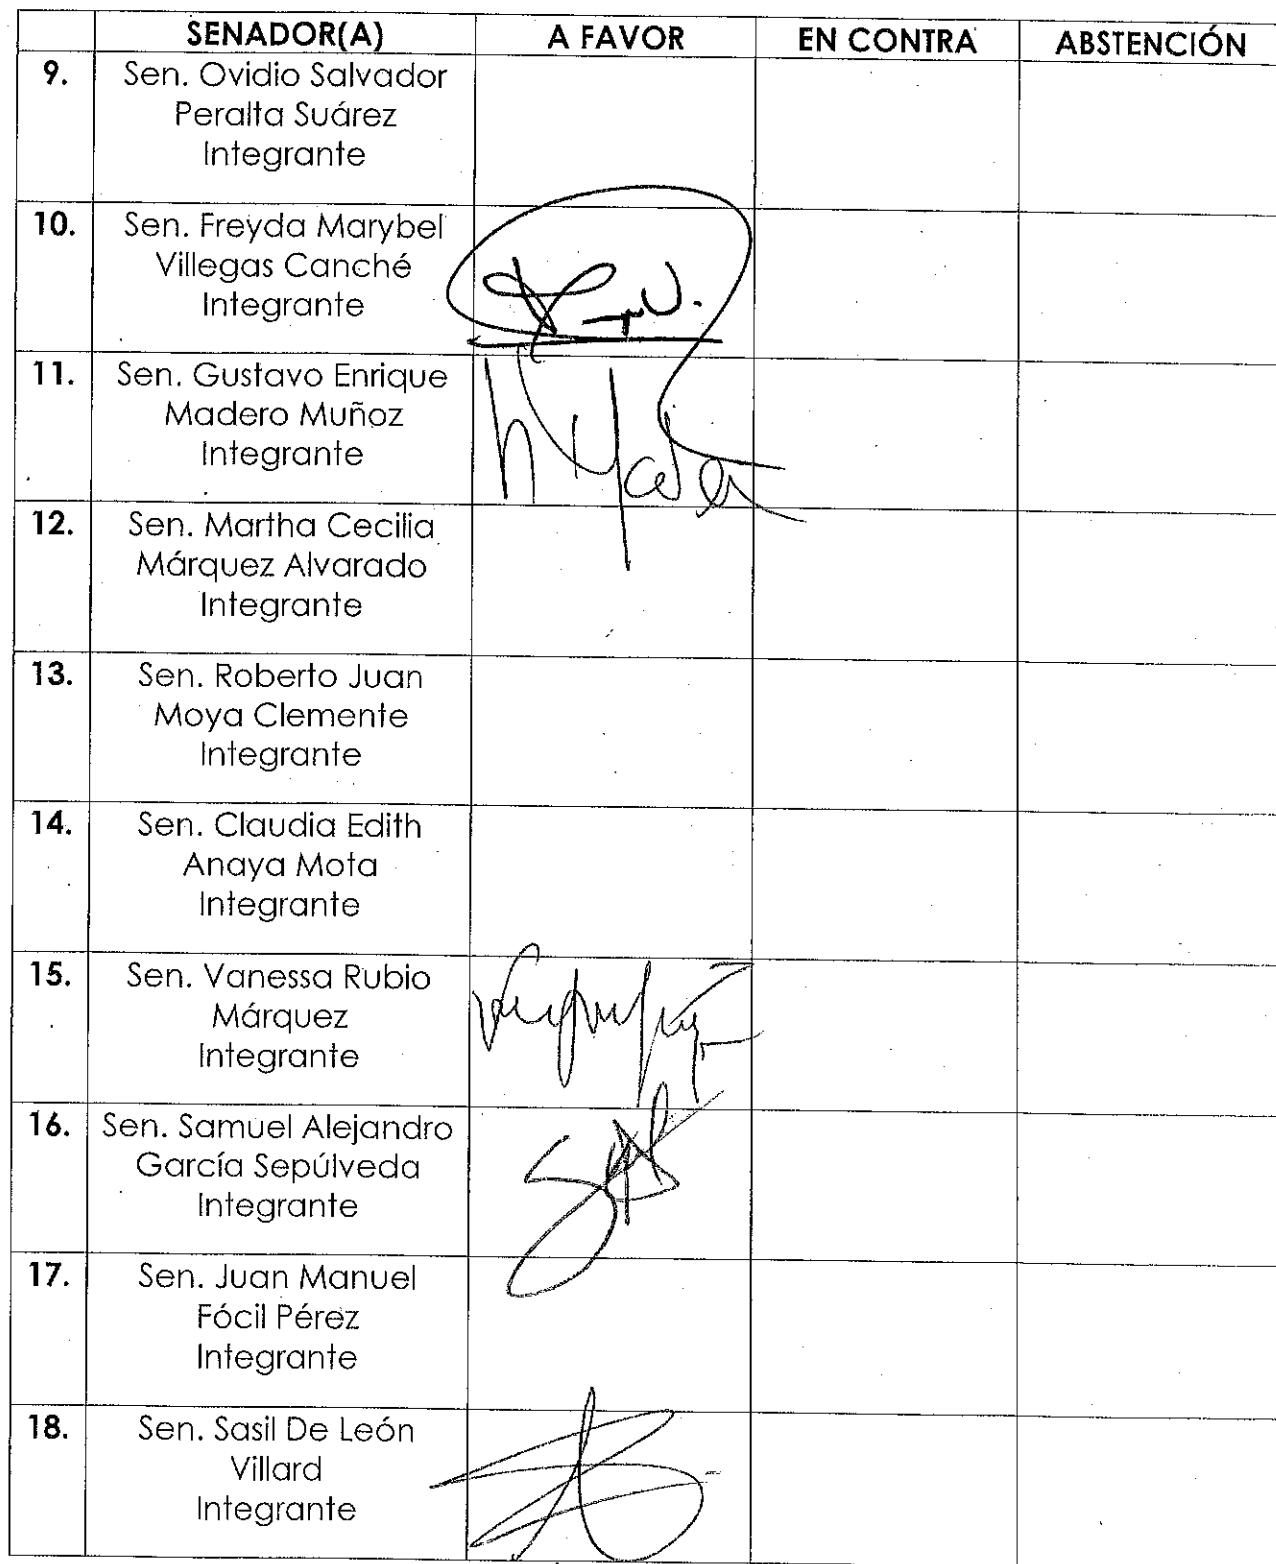 SENADOR(A) A FAVOR EN CONTRA ABSTENCIÓN
9. Sen. Ovidio Salvador
Peralta Suárez
Integrante
10. Sen. Freyda Marybel
Villegas Canché
Integrante
11. Sen. Gustavo Enrique
Madero Muñoz
Integrante
12. Sen. Martha Cecilia
Márquez Alvarado
Integrante
13. Sen. Roberto Juan
Moya Clemente
Integrante
14. Sen. Claudia Edith
Anaya Mota
Integrante
15. Sen. Vanessa Rubio
Márquez
Integrante
16. Sen. Samuel Alejandro
García Sepúlveda
Integrante
17. Sen. Juan Manuel
Fócil Pérez
Integrante
18. Sen. Sasil De León
Villard
Integrante